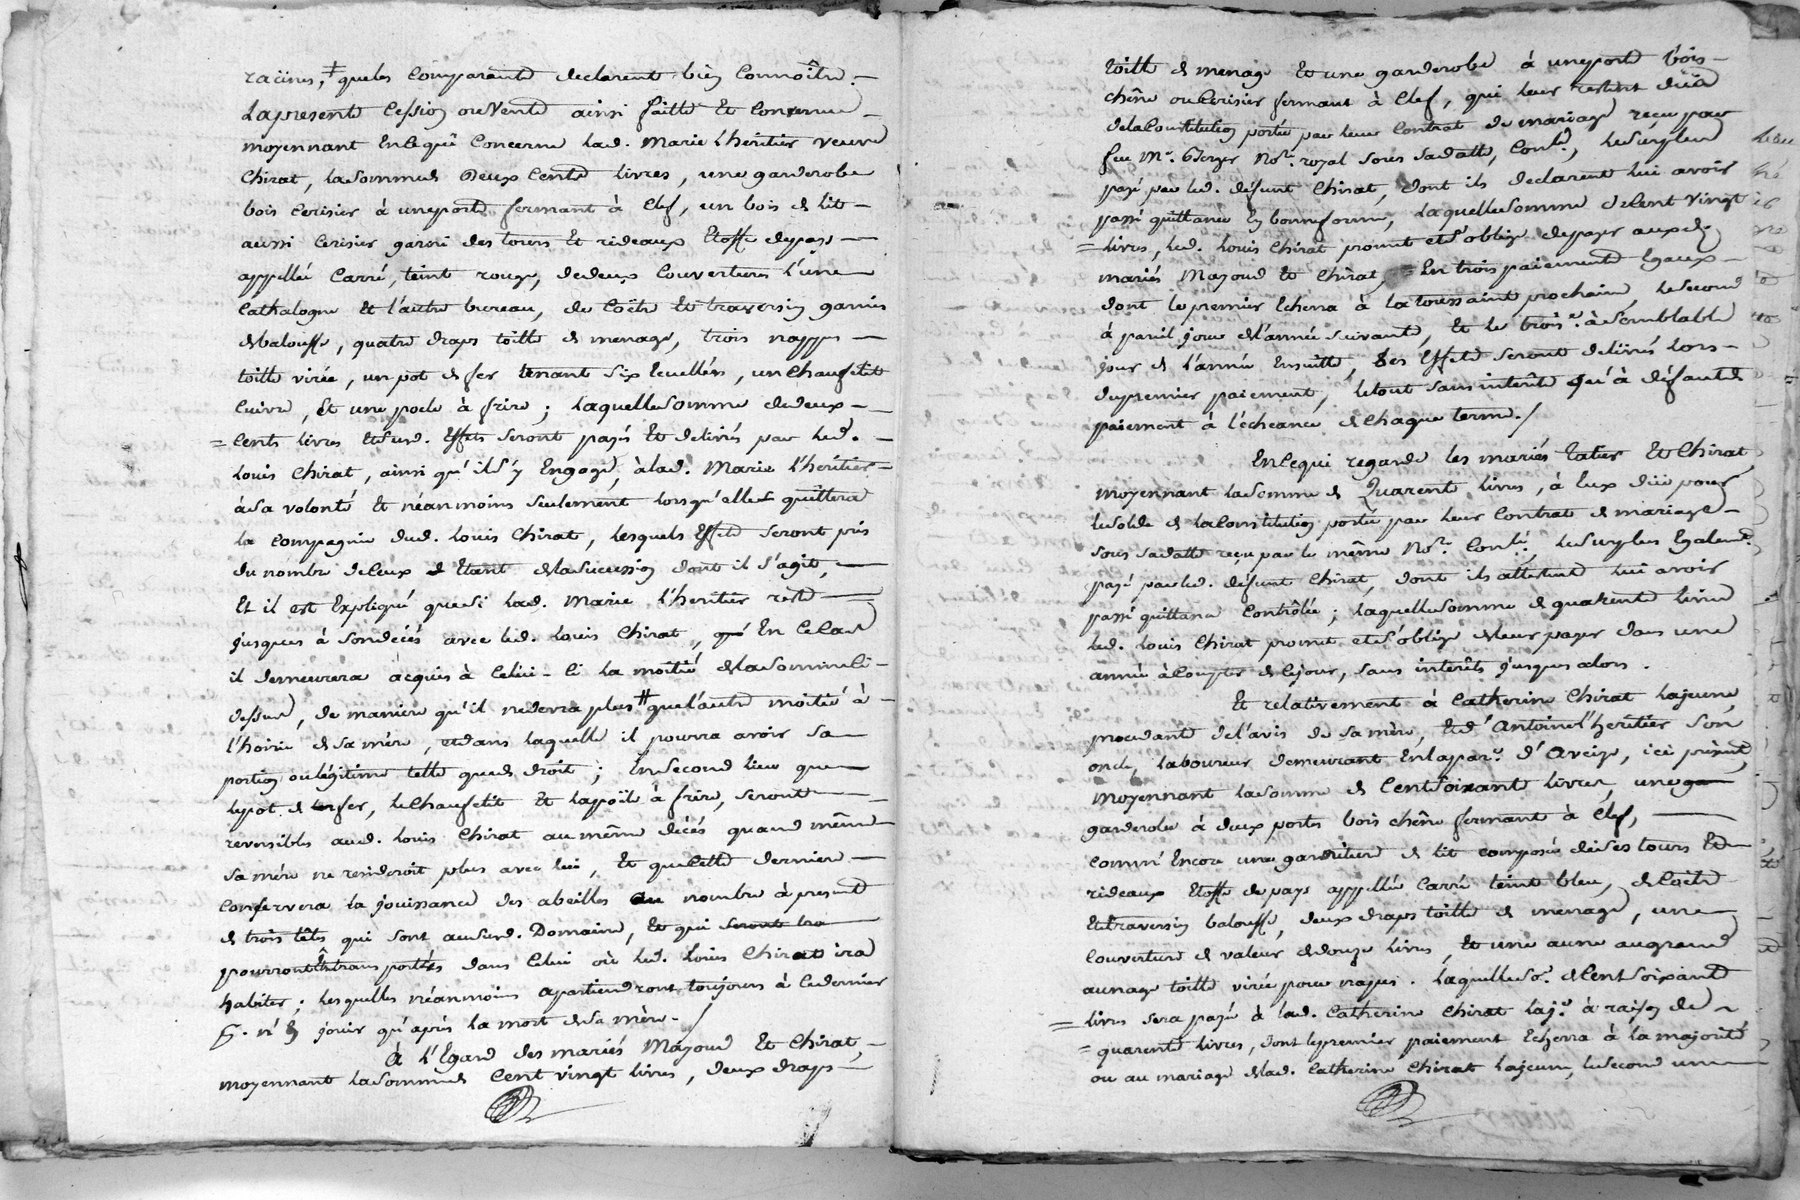 racines, ‡ que les comparants declarent bien connoître. —
La presente cession ou vente ainsi faitte et convenue —
moyennant en ce qui concerne lad. Marie L'heritier veuve
Chirat, la somme de deux cents livres, une garderobe
bois cerisier à une porte fermant à clef, un bois de lit —
aussi cerisier garni des tours et rideaux etoffe de pays —
appellée carré, teint rouge, de deux couvertures l'une —
cathalogne et l'autre bureau, de coëtre et traversin garnis
de balouffe, quatre draps toille de menage, trois nappes —
toille virée, un pot de fer tenant six ecuellées, un chaufelit
cuivre, et une poele à frire ; laquelle somme de deux —
= cents livres et susd. effets seront payés et delivrés par led. —
Louis Chirat, ainsi qu'il s'y engage, à lad. Marie L'heritier —
à sa volonté et néanmoins seulement lorsqu'elle quittera
la compagnie dud. Louis Chirat, lesquels effets seront pris
du nombre de ceux etant de la succession dont il s'agit, —
Et il est expliqué que si lad. Marie L'heritier reste —
jusques à son décès avec led. Louis Chirat, en ce cas
il demeurera acquis à celui-ci la moitié de la somme ci-
dessus, de maniere qu'il ne devra plus # que l'autre moitié à —
l'hoirie de sa mère, et dans laquelle il pourra avoir sa —
portion ou légitime telle que de droit ; En second lieu que —
le pot de fer, le chaufelit et la poële à frire, seront —
reversibles aud. Louis Chirat au même décès quand même
sa mère ne resideroit plus avec lui, et que cette derniere —
conservera la jouissance des abeilles au nombre à present
de trois têts qui sont au susd. Domaine, et qui seront tra
pourront être transportés dans celui où led. Louis Chirat ira
habiter ; lesquelles néanmoins apartiendront toujours à ce dernier
p. n'en jouir qu'après la mort de sa mère. /
À l'egard des mariés Mazoud et Chirat, —
moyennant la somme de cent vingt livres, deux draps —
toille de menage et une garderobe à une porte bois —
chêne ou cerisier fermant à clef, qui leur restent düe
de la constitution portée par leur contrat de mariage reçu par
feu Mr. Berger Nore. royal sous sa datte, contlé, le surplus
payé par led. défunt Chirat, dont ils declarent lui avoir
passé quittance en bonne forme, laquelle somme de cent vingt
= livres, led. Louis Chirat promit et s'oblige de payer auxd.
mariés Mazoud et Chirat, en trois paiements egaux —
dont le premier echerra à la toussaint prochaine, le second
à pareil jour de l'année suivante, et le trois.e à semblable
jour de l'année ensuitte, Les effets seront delivrés lors —
du premier paiement, le tout sans interêts qu'à défaut de
paiement à l'écheance de chaque terme. /
En ce qui regarde les mariés Tatier et Chirat
moyennant la somme de Quarente livres, à eux düe pour
le solde de la constitution portée par leur contrat de mariage —
sous sa datte reçu par le même Nore. contlé, le surplus egalemt.
payé par led. défunt Chirat, dont ils attestent lui avoir
passé quittance contrôlée ; laquelle somme de quarente livres
led. Louis Chirat promet et s'oblige de leur payer dans une
année à compter de ce jour, sans interêts jusques alors.
Et relativement à Catherine Chirat lajeune,
procedant de l'avis de sa mère, et d'Antoine L'heritier son
oncle, laboureur demeurant en la parse. d'Aveize, ici présent,
moyennant la somme de cent soixante livres, une ga
garderobe à deux portes bois chêne fermant à clef, —
comm'encore une garniture de lit composée de ses tours et
rideaux etoffe de pays appellée carré teint bleu, de coëtre
et traversin balouffe, deux draps toille de menage, une
couverture de valeur de douze livres, et une aune au grand
aunage toille virée pour napes. laquelle se. de cent soixante
= livres sera payé à lad. Catherine Chirat laje. à raison de —
= quarente livres, dont le premier paiement echerra à la majorité
ou au mariage de lad. Catherine Chirat lajeune, le second une —